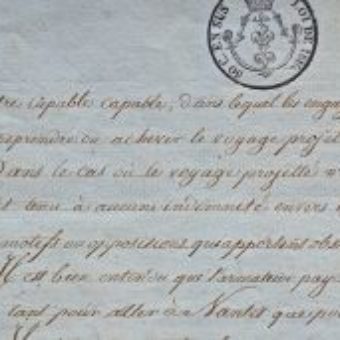 50 C. EN SUS LOI DE
tre capable capable, dans lequel les engag
reprendre ou achever le voyage projet
Dans le cas où le voyage projetté n
t tenu à aucune indemnité envers
motifs ou oppositions qu'apportent obs
Il est bien entendu que l'armateur pay
tant pour aller à Nantes que po